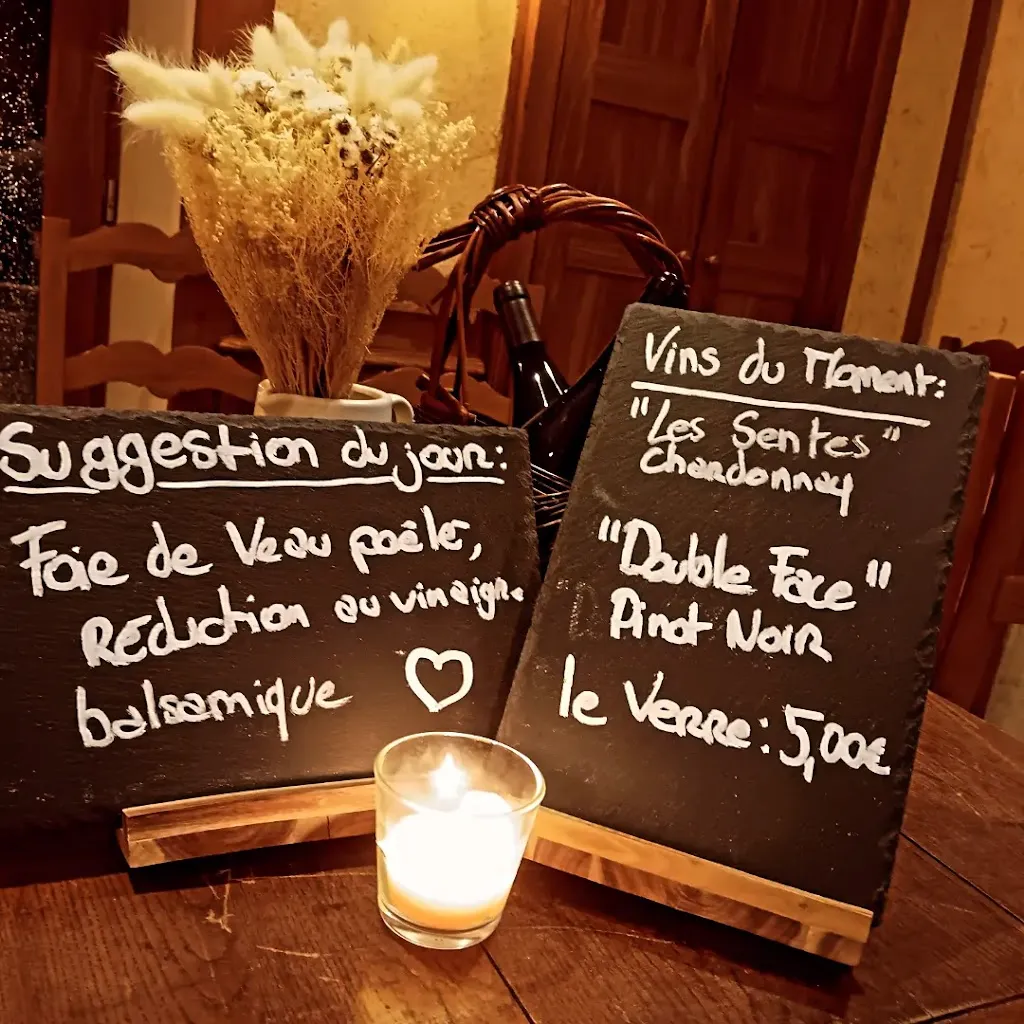 Suggestion du jour:
Foie de Veau poêlé,
Réduction au vinaigre
balsamique
Vins du Moment:
"Les Sentes"
Chardonnay
"Double Face"
Pinot Noir
le Verre: 5,00€